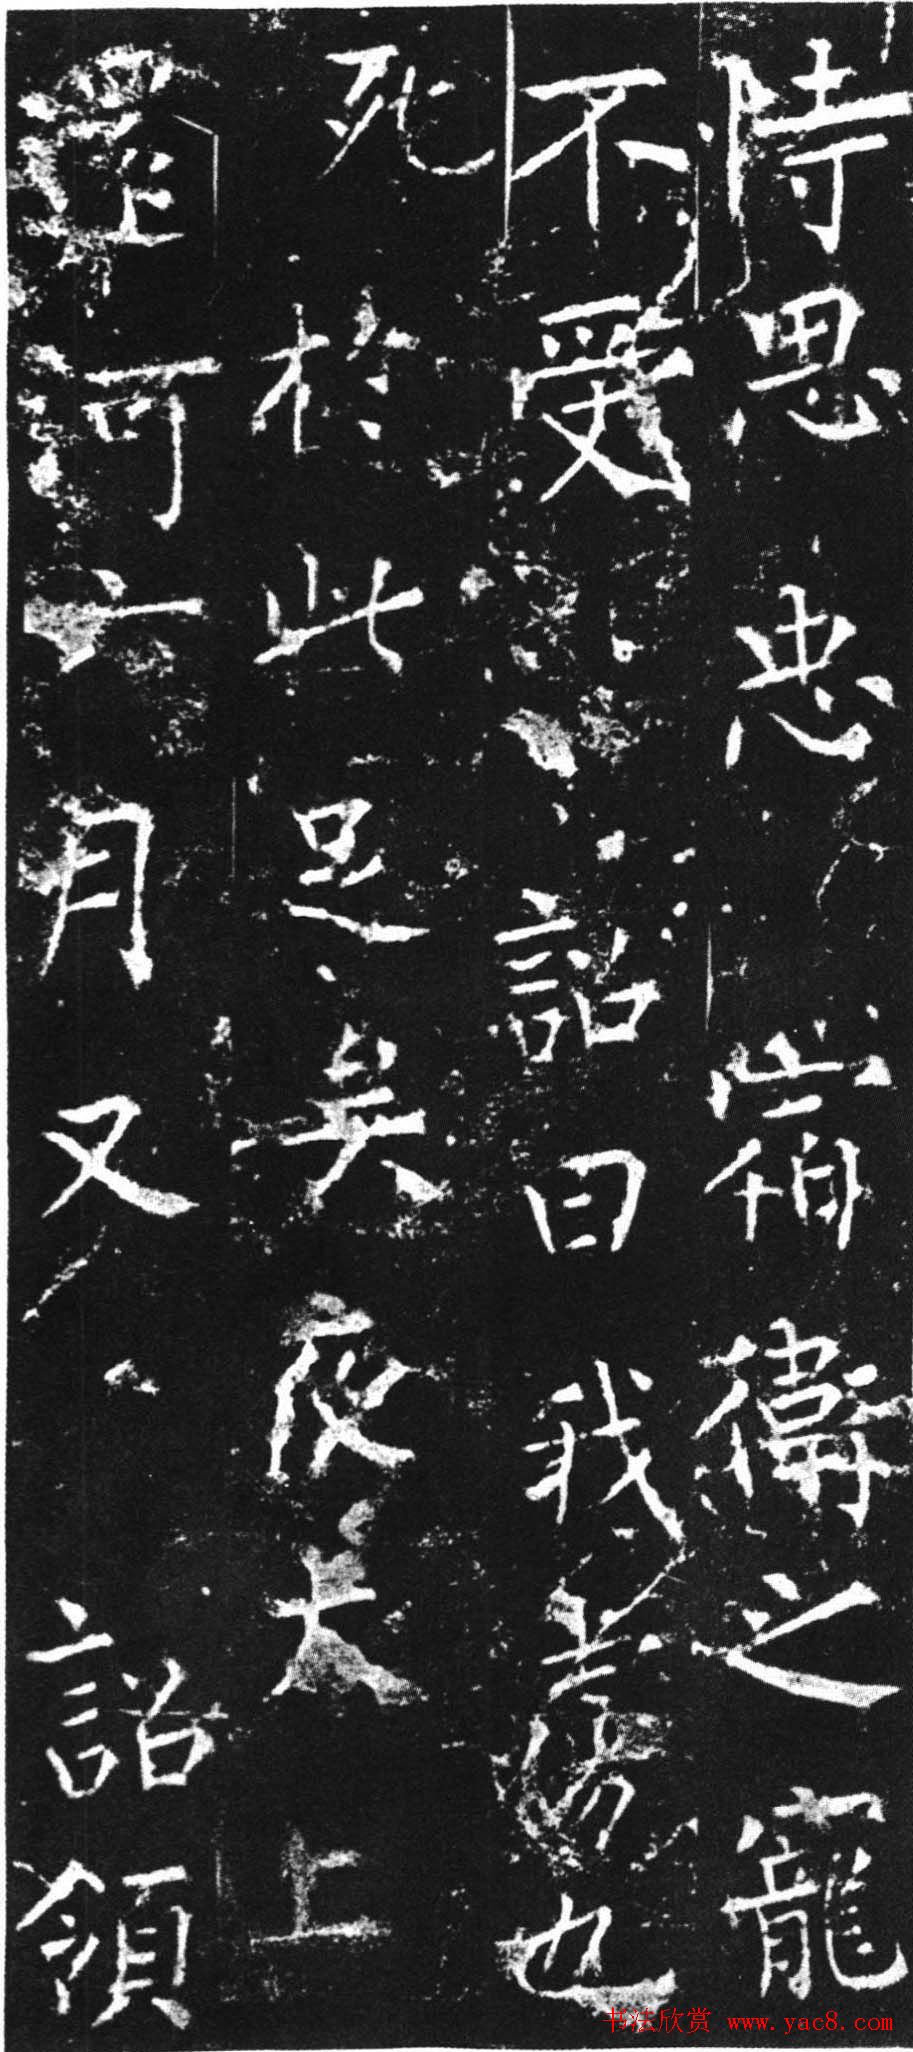 恃思忠宿衛之寵
不受詔曰我也
死於此足矣大上
河六月又詔領
书法欣赏 www.yac8.com